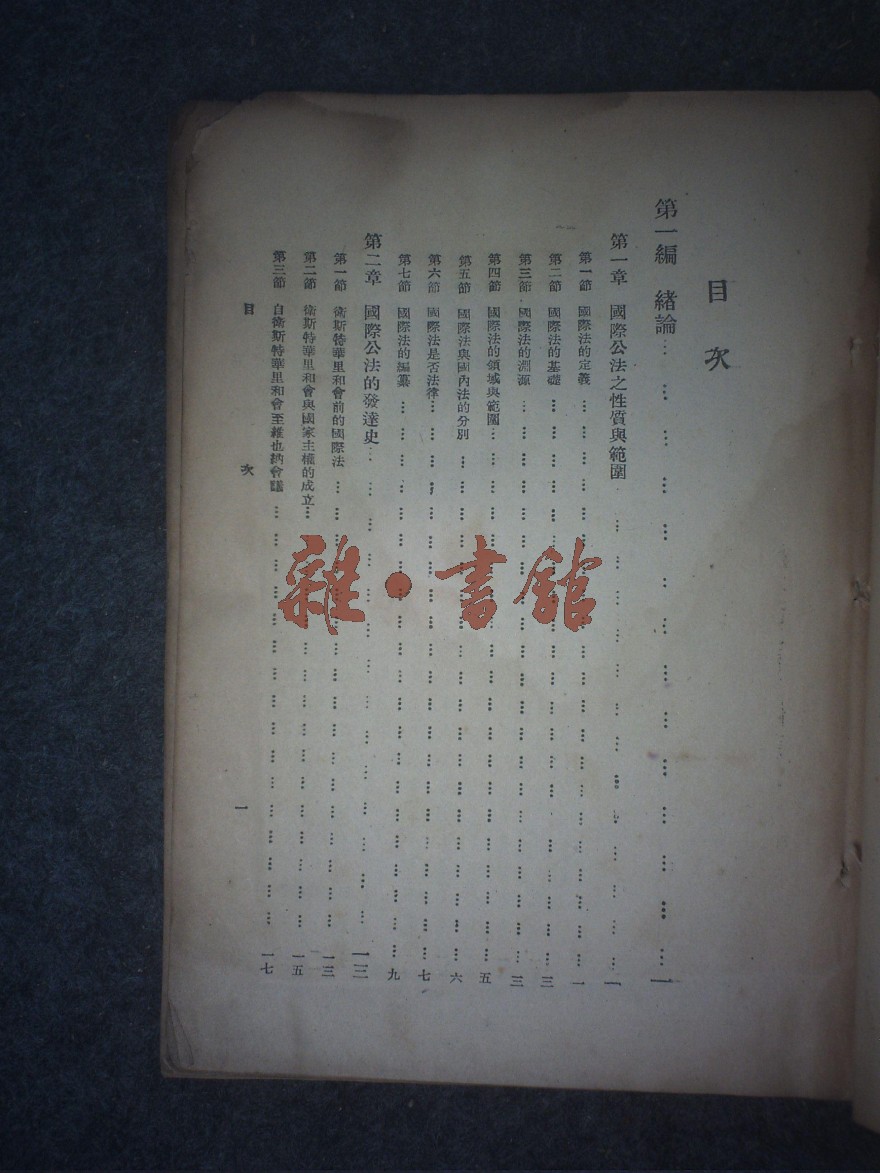 目次
第一編 緒論⋯⋯⋯⋯⋯⋯⋯⋯⋯⋯⋯⋯一
第一章 國際公法之性質與範圍⋯⋯⋯⋯⋯⋯⋯⋯⋯⋯一
第一節 國際法的定義⋯⋯⋯⋯⋯⋯⋯⋯⋯⋯⋯⋯一
第二節 國際法的基礎⋯⋯⋯⋯⋯⋯⋯⋯⋯⋯⋯⋯三
第三節 國際法的淵源⋯⋯⋯⋯⋯⋯⋯⋯⋯⋯⋯⋯三
第四節 國際法的領域與範圍⋯⋯⋯⋯⋯⋯⋯⋯⋯⋯五
第五節 國際法與國內法的分別⋯⋯⋯⋯⋯⋯⋯⋯⋯⋯六
第六節 國際法是否法律⋯⋯⋯⋯⋯⋯⋯⋯⋯⋯⋯⋯七
第七節 國際法的編纂⋯⋯⋯⋯⋯⋯⋯⋯⋯⋯⋯⋯九
第二章 國際公法的發達史⋯⋯⋯⋯⋯⋯⋯⋯⋯⋯一三
第一節 衛斯特華里和會前的國際法⋯⋯⋯⋯⋯⋯⋯⋯一三
第二節 衛斯特華里和會與國家主權的成立⋯⋯⋯⋯⋯⋯一五
第三節 自衛斯特華里和會至維也納會議⋯⋯⋯⋯⋯⋯一七
目次 一
雜·書館